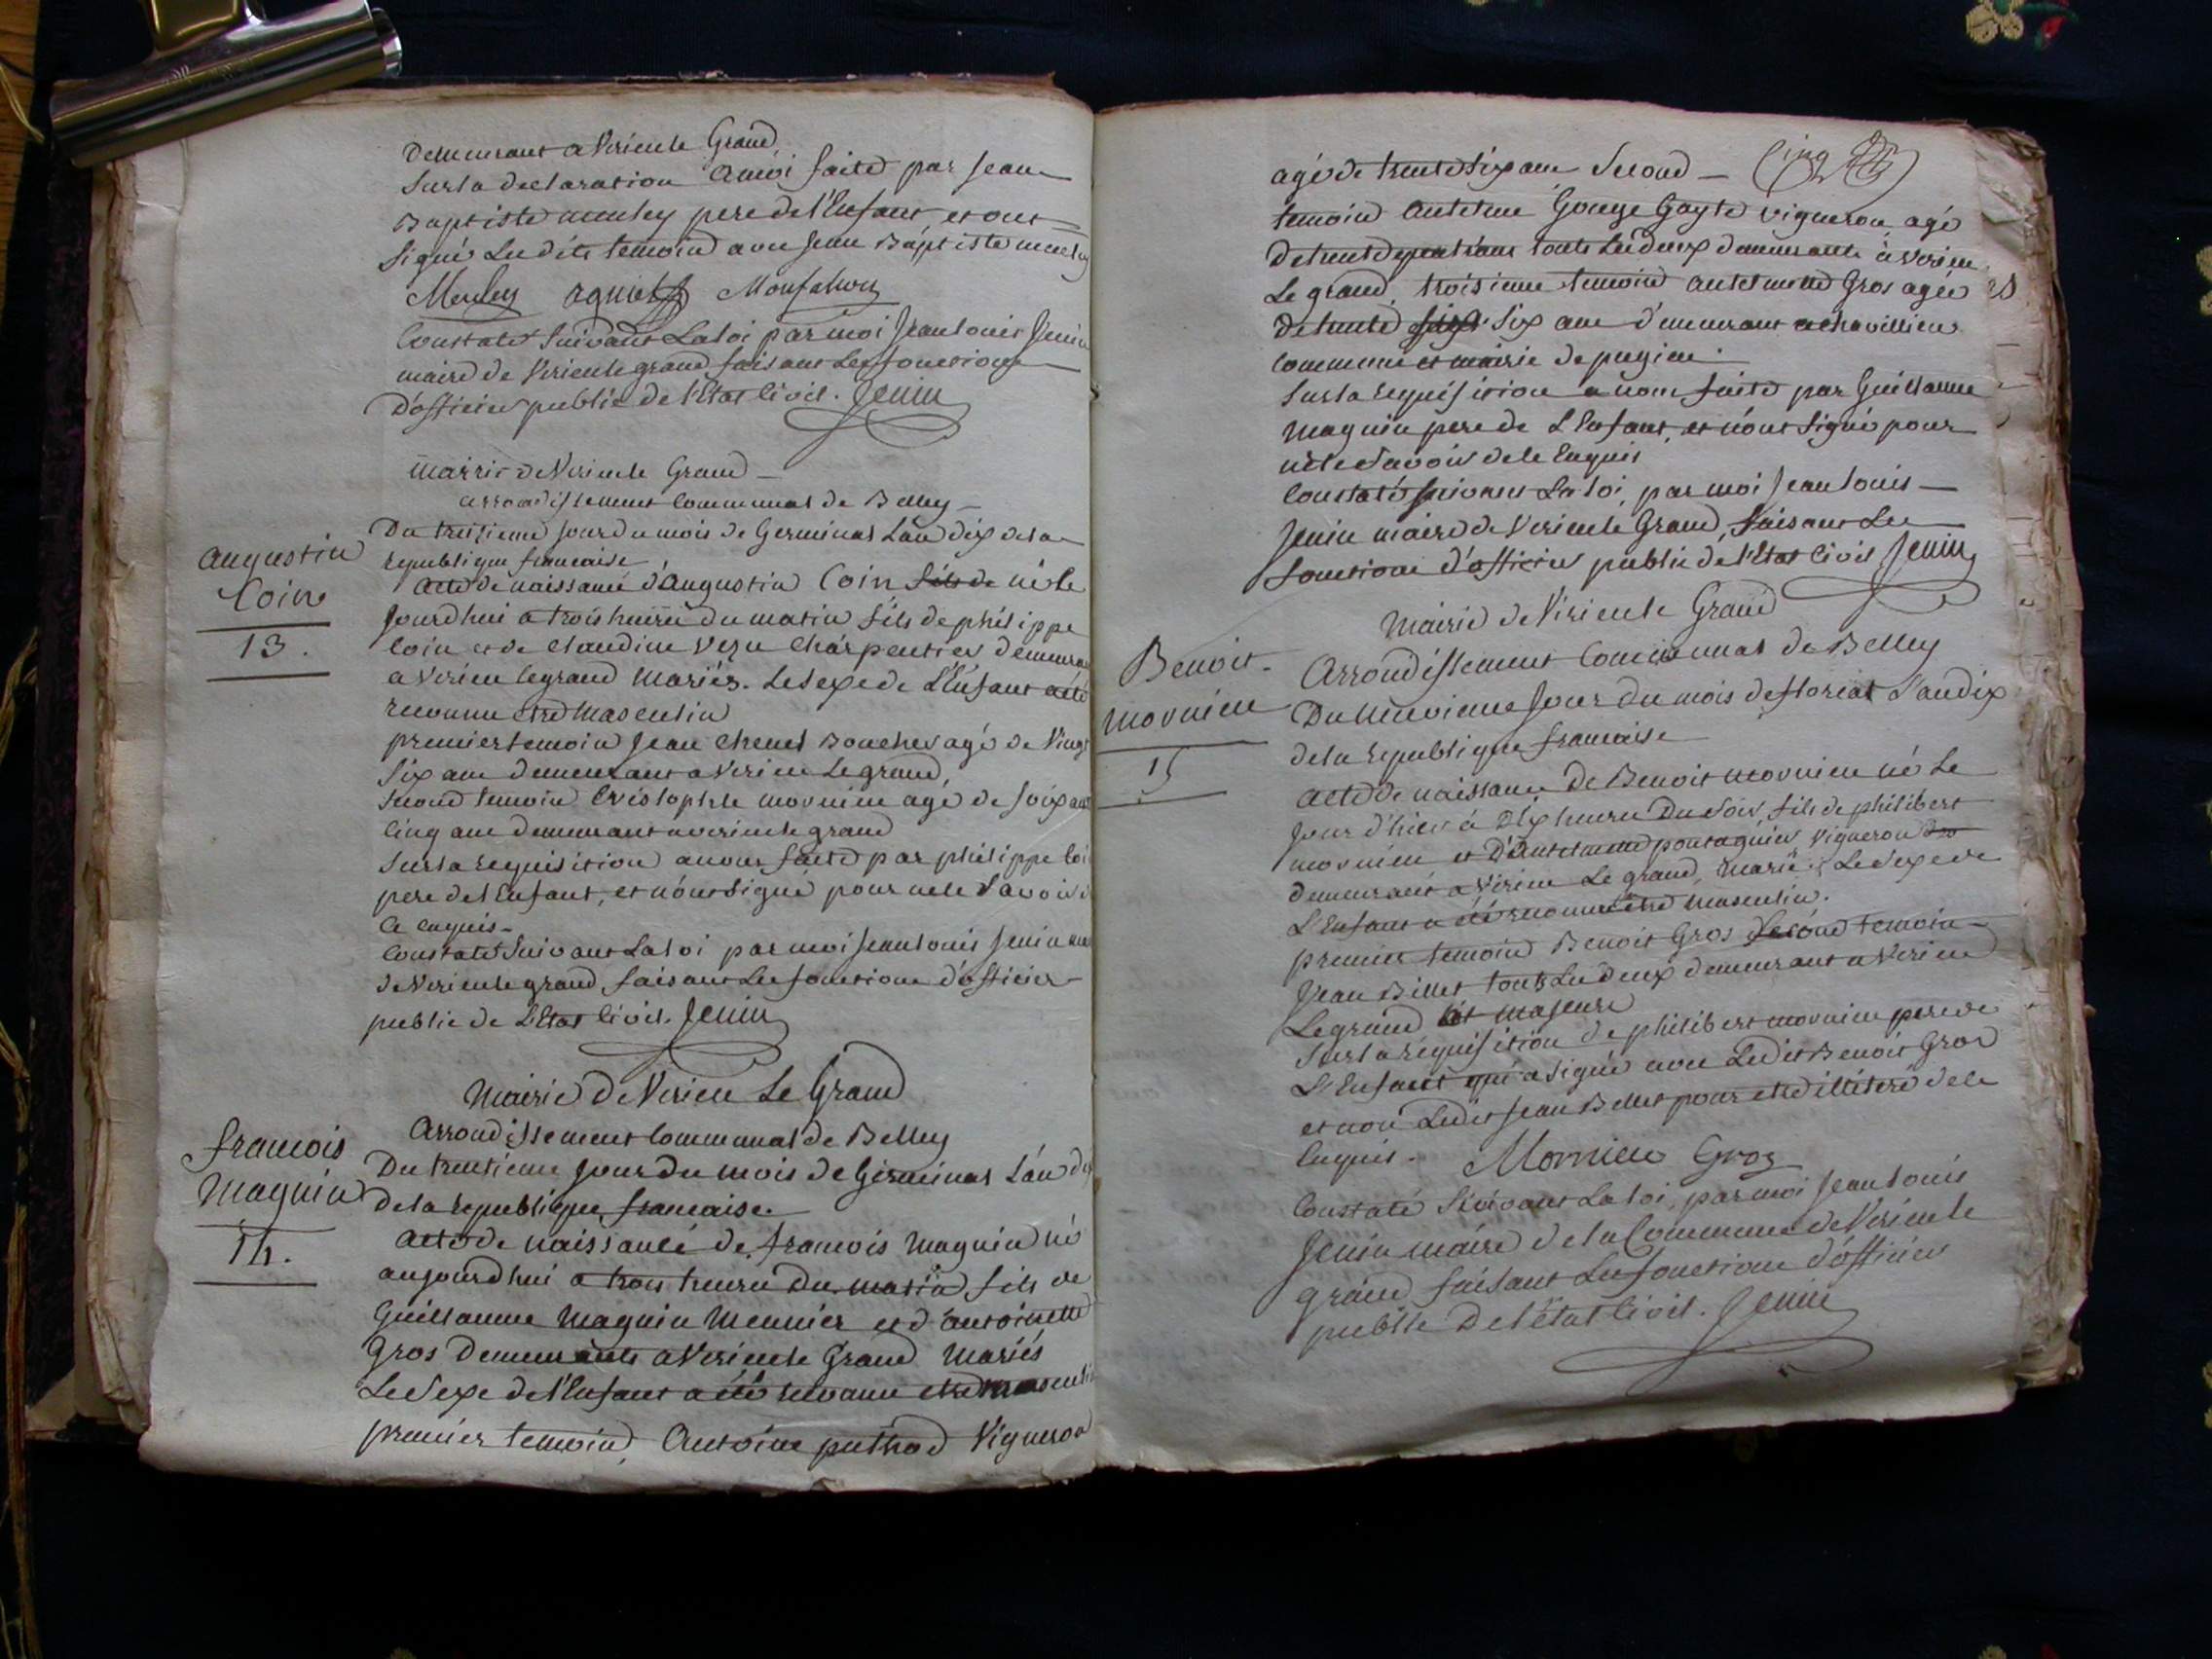 demeurant a Virieu le Grand,
Sur la declaration a moi faite par Jean
Baptiste meuley pere de l'Enfant et ont
Signé Les dits temoins avec Jean Baptiste meuley
Meuley Monfalcon
Constaté Suivant La loi par moi Jean louis Jenin
maire de Virieu le grand faisant Les fonctions
D'officier public de l'Etat Civil. Jenin
Mairie de Virieu le Grand
arrondissement Communal de Belley
Augustin
Coin
13.
Du treizieme Jour du mois de Germinal L'an dix de la
republique francaise
Acte de naissance d'Augustin Coin fils de né le
Jourd'hui a trois heures du matin fils de philippe
Coin et de Claudine Charpentier demeurant
a Virieu le grand Mariés. Le Sexe de L'Enfant a été
reconnu etre Masculin
premier temoin Jean Boucher agé de Vingt
Six ans demeurant a Virieu Le grand,
Second temoin Cristophle mornieu agé de Soixante
Cinq ans demeurant a virieu le grand
Sur la requisition a nous faite par philippe Coin
pere de l'Enfant, et n'ont Signé pour ne le Savoir de
Ce enquis
Constaté Suivant La loi par moi Jean louis Jenin maire
de Virieu le grand, faisant Les fonctions d'officier
public de L'Etat Civil. Jenin
Mairie de Virieu Le Grand
Arrondissement Communal de Belley
francois
Magnin
14.
Du trentieme Jour du mois de Germinal L'an dix
de la republique francaise.
Acte de naissance de francois Magnin né
aujourd'hui a trois heures du matin fils de
Guillaume Magnin Meunier et d'antoinette
Gros demeurants a Virieu le Grand Mariés
Le Sexe de l'Enfant a été reconnu etre masculin
premier temoin, Antoine puthod Vigneron
agé de trente Six ans Second
Cinq
temoin antelme Gouge Gayte vigneron agé
de trente quatre ans touts Les deux demeurants à Virieu
Le grand, troisieme temoin antelmette Gros agée
de trente Six ans demeurant a chavillieu
Commune et mairie de pugieu.
Sur la requisition a nous faite par Guillaume
Magnin pere de L'Enfant, et n'ont Signé pour
ne le Savoir de le Enquis
Constaté Suivant La loi, par moi Jean louis
Jenin maire de Virieu le Grand, faisant Les
fonctions d'officier public de l'Etat Civil Jenin
Mairie de Virieu le Grand
Arrondissement Communal de Belley
Benoit
mornieu
15
Du Neuvieme Jour du mois de floréal L'an dix
de la republique francaise
Acte de naissance de Benoit mornieu né Le
Jour d'hier à Dix heures Du Soir, fils de philibert
mornieu et D'antelmette pontagnier vigneron
demeurant a Virieu Le grand, mariés. Le Sexe de
L'Enfant a été reconnu etre masculin.
premier temoin Benoit Gros Second temoin
Jean Billet touts Les deux demeurant a Virieu
Le grand et majeurs
Sur la requisition de philibert mornieu pere de
L'Enfant qui a Signé avec Ledit Benoit Gros
et non Ledit Jean Billet pour etre illiteré de le
Enquis. Mornieu Gros
Constaté Suivant La loi, par moi Jean louis
Jenin maire de la Commune de Virieu le
grand faisant Les fonctions d'officier
public De l'état Civil. Jenin